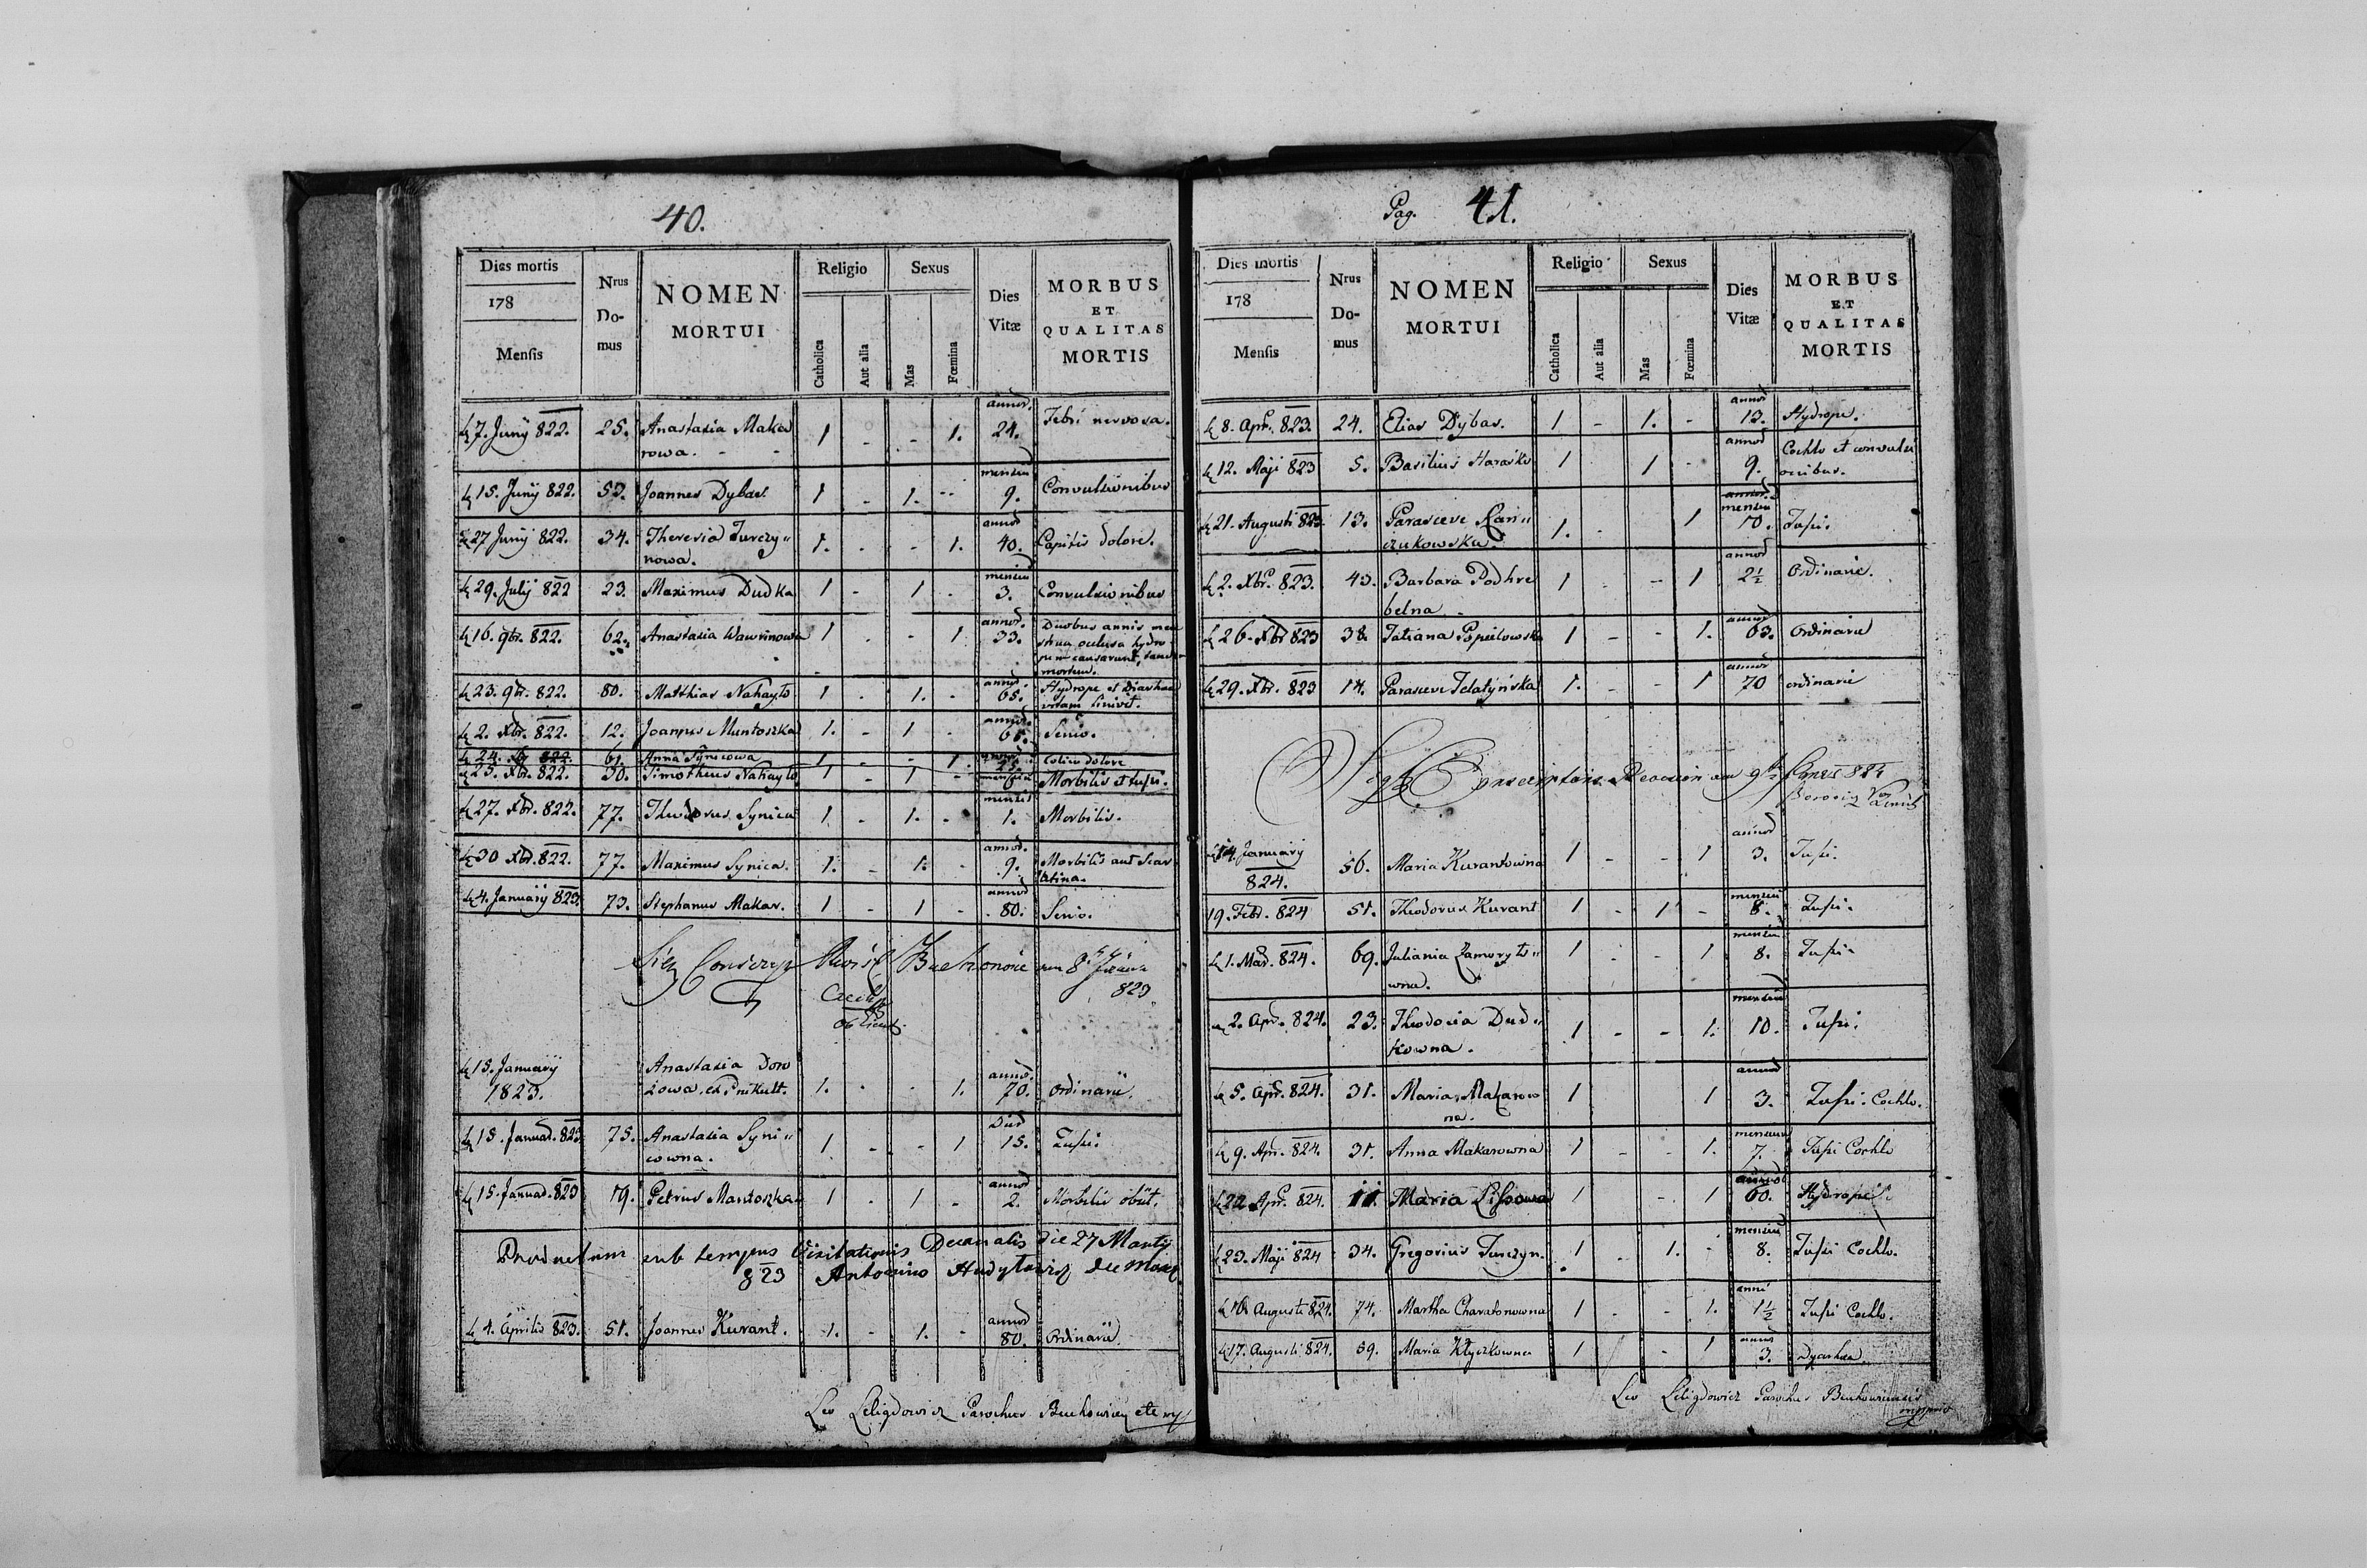 40.
Dies mortis
178
Mensis
Nrus Do-mus
NOMEN MORTUI
Religio
Catholica
Aut alia
Sexus
Mas
Fœmina
Dies Vitæ
MORBUS ET QUALITAS MORTIS
7. Junÿ 822. 25. Anastasia Maka 1 - - 1. annor. 24. Febri nervosa.
rowa. - -
15. Junÿ 822. 53. Joannes Dybas. 1 - 1. - mensiu 9. Convulsionibus
27 Junÿ 822. 34. Theresia Turczy" 1. - - 1. annor 40. Capitis dolore.
nowa.
29. Julÿ 822 23. Maximus Dudka 1 - 1 - mensiu 3. Convulsionibus
16. 9br. 822. 62. Anastasia Wawrinowa 1 - - 1 annor. 33. Duobus annis men
strua oclusa hydro
pem causarunt,
mortem.
23. 9br. 822. 80. Matthias Nahayło 1 - 1. - annor. 65. Hydrope et Diarhea
vitam finivit.
2. Xbr. 822. 12. Joannes Muntoszka 1. - 1 - annor. 66. Senio.
24. Xbr 822. 61. Anna Synicowa 1 - - 1 Colico dolore
25. Xbr. 822. 30. Timotheus Nahayło 1 - 1 - mensiu 6 Morbilis et tussi.
27. Xbr. 822. 77. Theodorus Synica 1 - 1. - mensis 1. Morbilis.
30 Xbr. 822. 77. Maximus Synica. 1. - 1. - annor. 9. Morbilis aut Scar
latina.
4. Januarÿ 823. 73. Stephanus Makar. 1 - 1 - annor 80. Senio.
823
15. Januarÿ Anastasia Dow
1823. 1. - - 1. annor. 70. Ordinarie.
15. Januar. 823 75. Anastasia Syni" 1. - - 1 Dier 15. Tussi.
cowna.
15. Januar. 823 19. Petrus Mantoszka 1 - 1 - annor 2. Morbilis obiit.
Productum sub tempus Visitationis Decanalis die 27 Martÿ
823 Antonino
4. Aprilis 823. 51. Joannes Kurant. 1. - 1. - annor 80. Ordinarie.
Leo Leligdowicz Parochus
Pag. 41.
Dies mortis
178
Mensis
Nrus Do-mus
NOMEN MORTUI
Religio
Catholica
Aut alia
Sexus
Mas
Fœmina
Dies Vitæ
MORBUS ET QUALITAS MORTIS
8. Apr. 823. 24. Elias Dybas. 1 - 1. - annor 13. Hydrope.
12. Maji 823 5. Basilius Haraśko 1 1 - annor 9. Cochlo et convulsi
onibus.
21. Augusti 823. 13. Parasceve Lan" 1. - 1 mensiu 10. Tussi.
czukowska.
2. Xbr. 823. 43. Barbara Podhre 1 - - 1 annor 2½ Ordinarie.
belna
26. Xbr 823 38. Tatiana Popielowska 1 - - 1. annor 63. Ordinarie
29. Xbr. 823 14. Parasceve Telatyńska 1. - - 1 annor 70 ordinarie
14. Januarÿ 56. Maria Kurantowna 1 - - 1 annor 3. Tussi.
824.
19. Febr. 824 51. Theodorus Kurant 1 - 1 - mensiu 8. Tussi.
1. Mar. 824. 69. Juliania Zamoryto" 1 - - 1 mensiu 8. Tussi.
wna.
2. Apr. 824. 23. Theodosia Dud" 1 - - 1. mensiu 10. Tussi.
kowna.
5. Apr. 824. 31. Maria Makarow 1 1 annor 3. Tussi. Cochlo.
na.
9. Apr. 824. 31. Anna Makarowna 1 - - 1. mensium 7. Tussi Cochlo
22 Apr. 824. 11. Maria Lisowa 1 - 1 annor 60. Hydrope.
23. Maji 824 34. Gregorius Turczyn. 1 - 1. - mensiu 8. Tussi Cochlo.
16 Augusti 824. 74. Martha Charatonowna 1 - - 1. anni 1½ Tussi Cochlo.
17. Augusti 824. 59. Maria Kłyczkowna 1 - 1 annor 3. Dyarhea.
Leo Leligdowicz Parochus